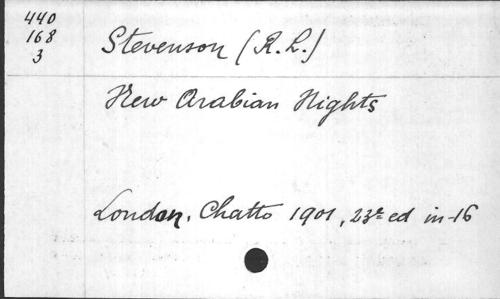 440
168
3
Stevenson (R. L.)
New Arabian Nights
London, Chatto 1901, 23e ed in-16